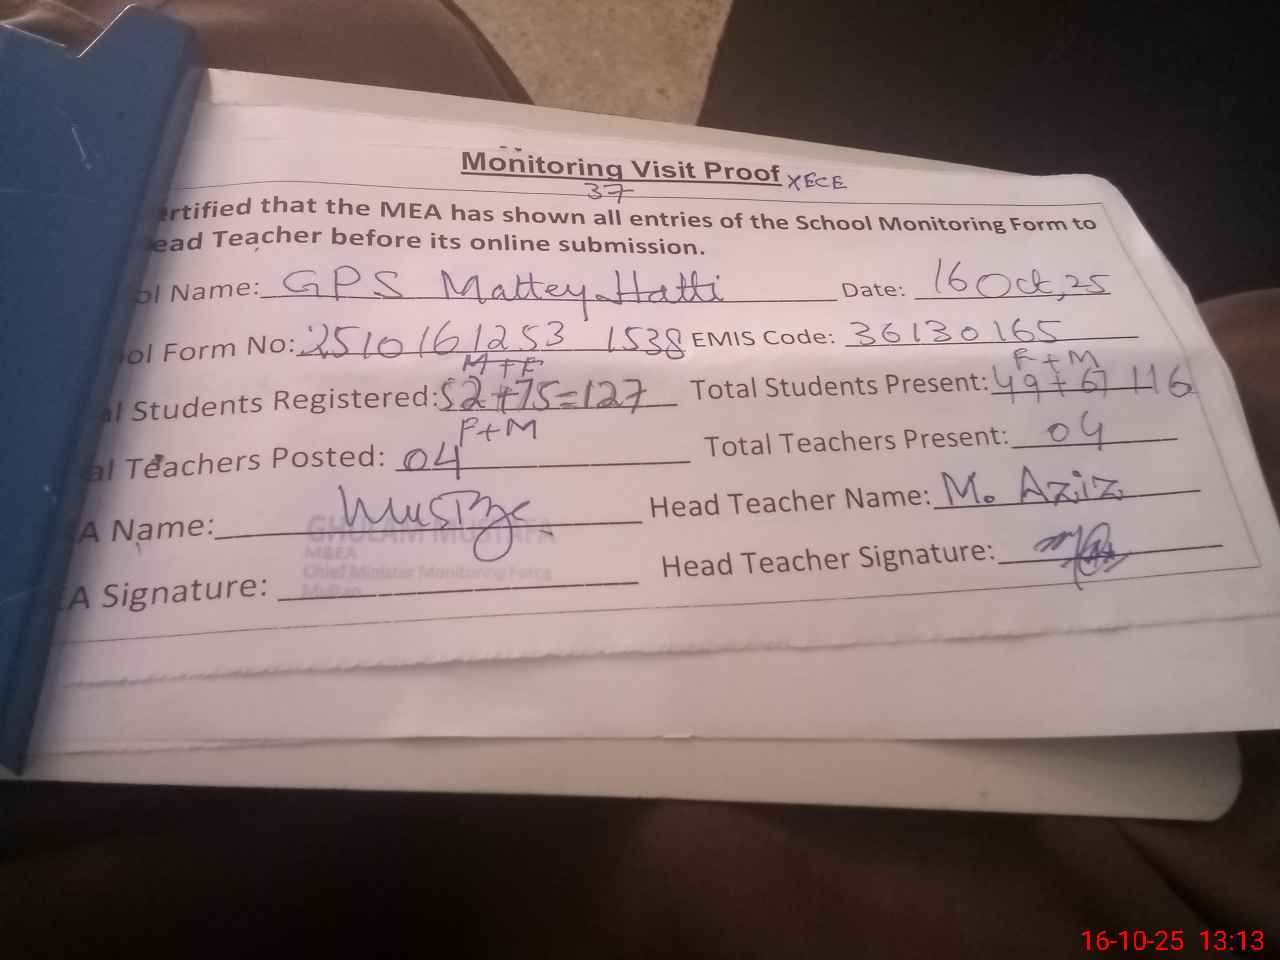 Monitoring Visit Proof XECE
37
ertified that the MEA has shown all entries of the School Monitoring Form to
ead Teacher before its online submission.
ol Name: GPS Mattey Hatti Date: 16 Oct, 25
ool Form No: 2510161253 1538 EMIS Code: 36130165
M+F F+M
al Students Registered: 52+75=127 Total Students Present: 49+67 116
F+M
al Teachers Posted: 04 Total Teachers Present: 04
A Name: Head Teacher Name: M. Aziz
GHULAM MUSTAFA
M&EA
Chief Minister Monitoring Force
Multan
A Signature: Head Teacher Signature:
16-10-25 13:13